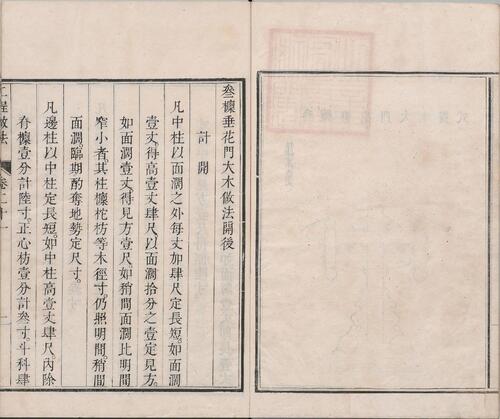 叁檩垂花門大木做法開後
計開
凡中柱以面濶之外每丈加肆尺定長短如面濶
壹丈得高壹丈肆尺以面濶拾分之壹定見方
如面濶壹丈得見方壹尺如稍間面濶比明間
窄小者其柱檩柁枋等木徑寸仍照明間稍間
面濶臨期酌奪地勢定尺寸
凡邊柱以中柱定長短如中柱高壹丈肆尺內除
脊檩壹分計陸寸正心枋壹分計叁寸斗科肆
工程做法
卷二十一